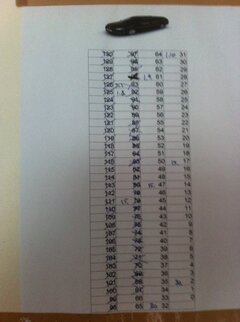 130 97 64 31
129 96 63 30
128 95 62 29
127 94 1.9 61 28
126 93 60 27
125 1.8 92 59 26
124 91 58 25
123 90 57 24
122 89 56 23
121 88 55 22
120 87 54 21
119 86 53 20
118 85 52 19
117 84 51 18
116 83 50 15 17
115 82 49 16
114 81 48 15
113 80 15 47 14
112 79 46 13
111 15 78 45 12
110 77 44 11
109 76 43 10
108 75 42 9
107 74 41 8
106 73 40 7
105 72 39 6
104 71 38 5
103 70 37 4
102 69 36 3
101 68 35 30 2
100 67 34 1
99 66 33 0
98 65 30 32